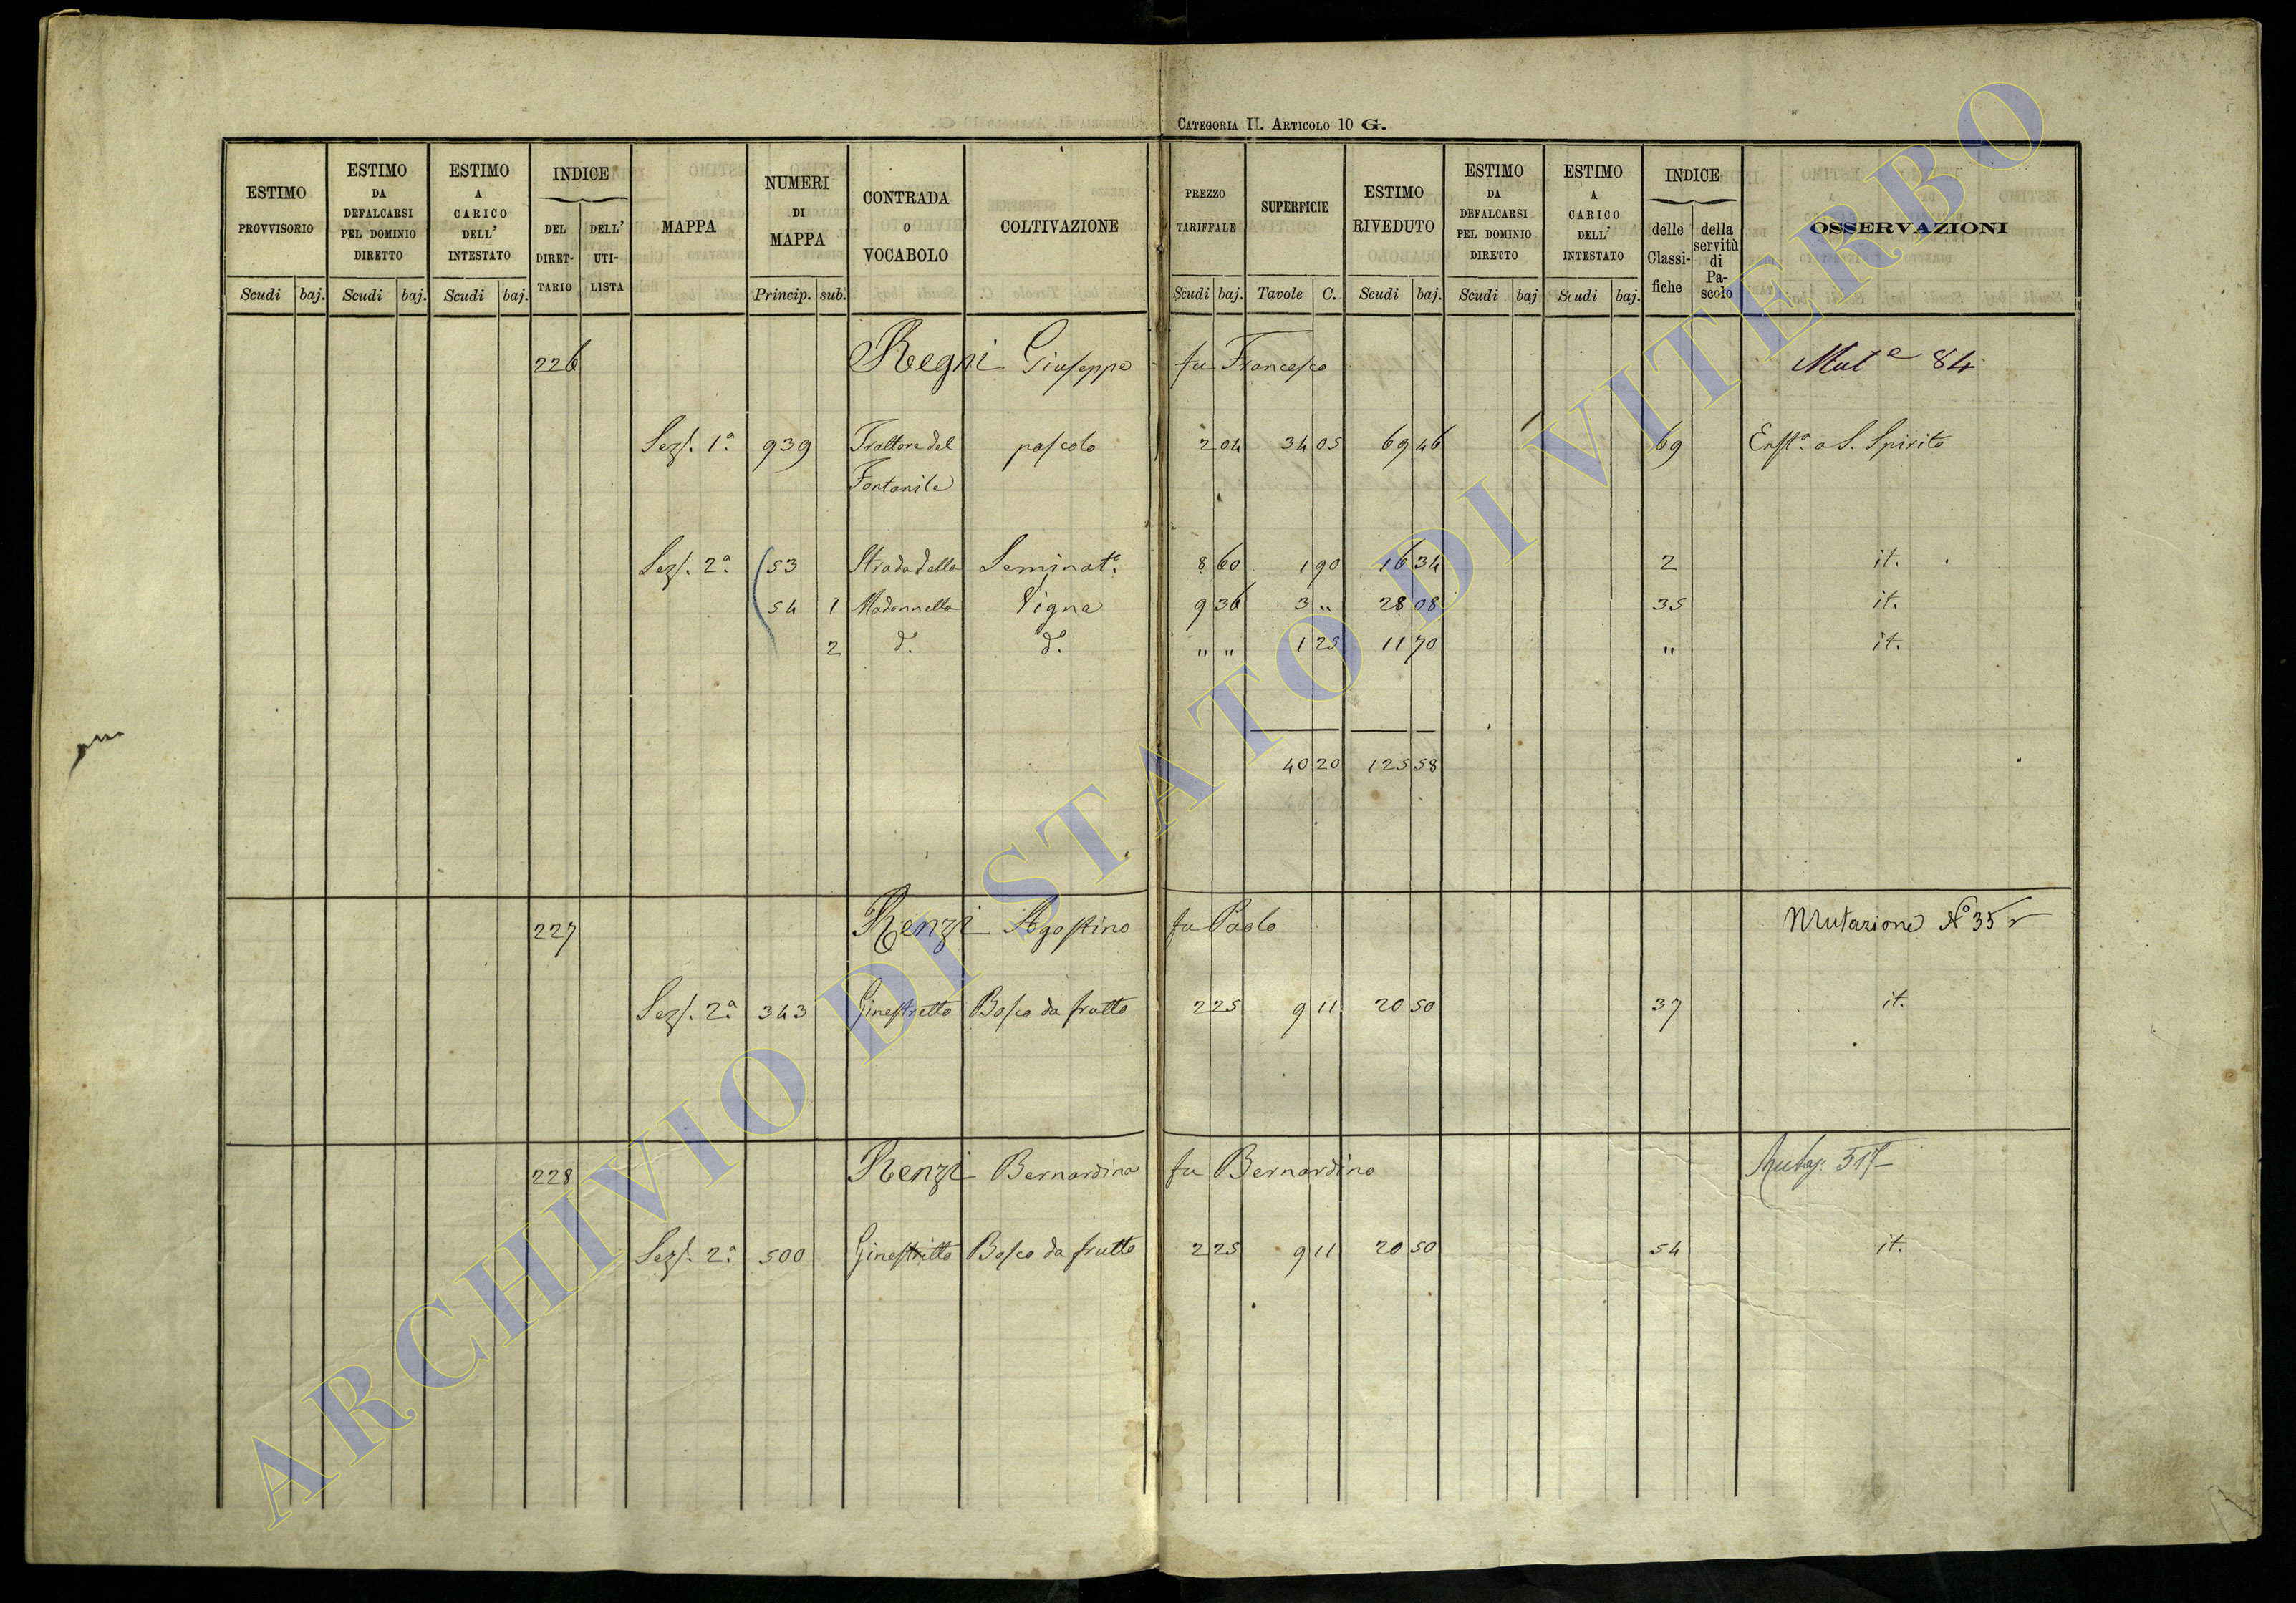 CATEGORIA II. ARTICOLO 10 G.
ESTIMO PROVVISORIO | ESTIMO DA DEFALCARSI PEL DOMINIO DIRETTO | ESTIMO A CARICO DELL' INTESTATO | INDICE | MAPPA | NUMERI DI MAPPA | CONTRADA O VOCABOLO | COLTIVAZIONE | PREZZO TARIFFALE | SUPERFICIE | ESTIMO RIVEDUTO | ESTIMO DA DEFALCARSI PEL DOMINIO DIRETTO | ESTIMO A CARICO DELL' INTESTATO | INDICE | OSSERVAZIONI
DEL DIRET-TARIO | DELL' UTI-LISTA | delle Classi-fiche | della servitù di Pa-scolo
Scudi | baj. | Scudi | baj. | Scudi | baj. | Princip. | sub. | Scudi | baj. | Tavole | C. | Scudi | baj. | Scudi | baj | Scudi | baj.
226 Regni Giuseppe fu Francesco Mut.e 84
Sez. 1ª 939 Trattore del pascolo 2 04 34 05 69 46 69 a S. Spirito
Fontanile
Sez. 2ª 53 Strada della Seminat.o 8 60 1 90 16 34 2 it.
54 1 Madonnella Vigna 9 36 3 " 28 08 35 it.
2 d.o d.o " " 1 25 11 70 " it.
40 20 125 58
227 Renzi Agostino fu Paolo Mutazione N.o 35
Sez. 2ª 343 Ginestretto Bosco da frutto 2 25 9 11 20 50 37 it.
228 Renzi Bernardina fu Bernardino Mutaz. 517
Sez. 2ª 500 Ginestritto Bosco da frutto 2 25 9 11 20 50 54 it.
ARCHIVIO DI STATO DI VITERBO